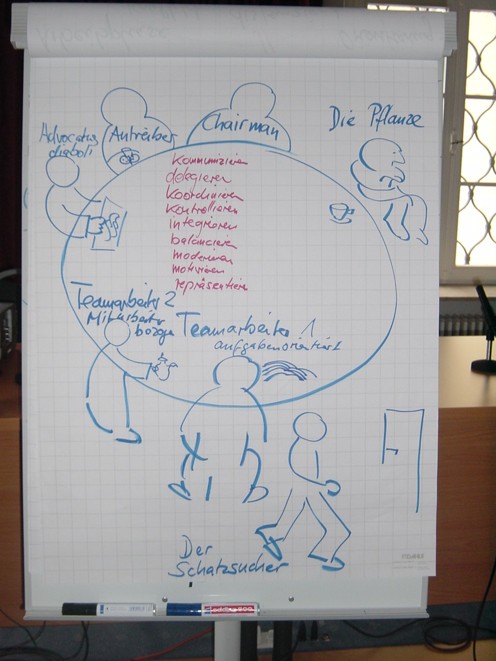 Advocatus
diaboli
Antreiber
Chairman
Die Pflanze
kommunizieren
delegieren
koordinieren
kontrollieren
integrieren
balancieren
moderieren
motivieren
repräsentieren
Teamarbeiter 2
Mitarbeiter
bezogen
Teamarbeiter 1
aufgabenorientiert
Der
Schatzsucher
edding 800